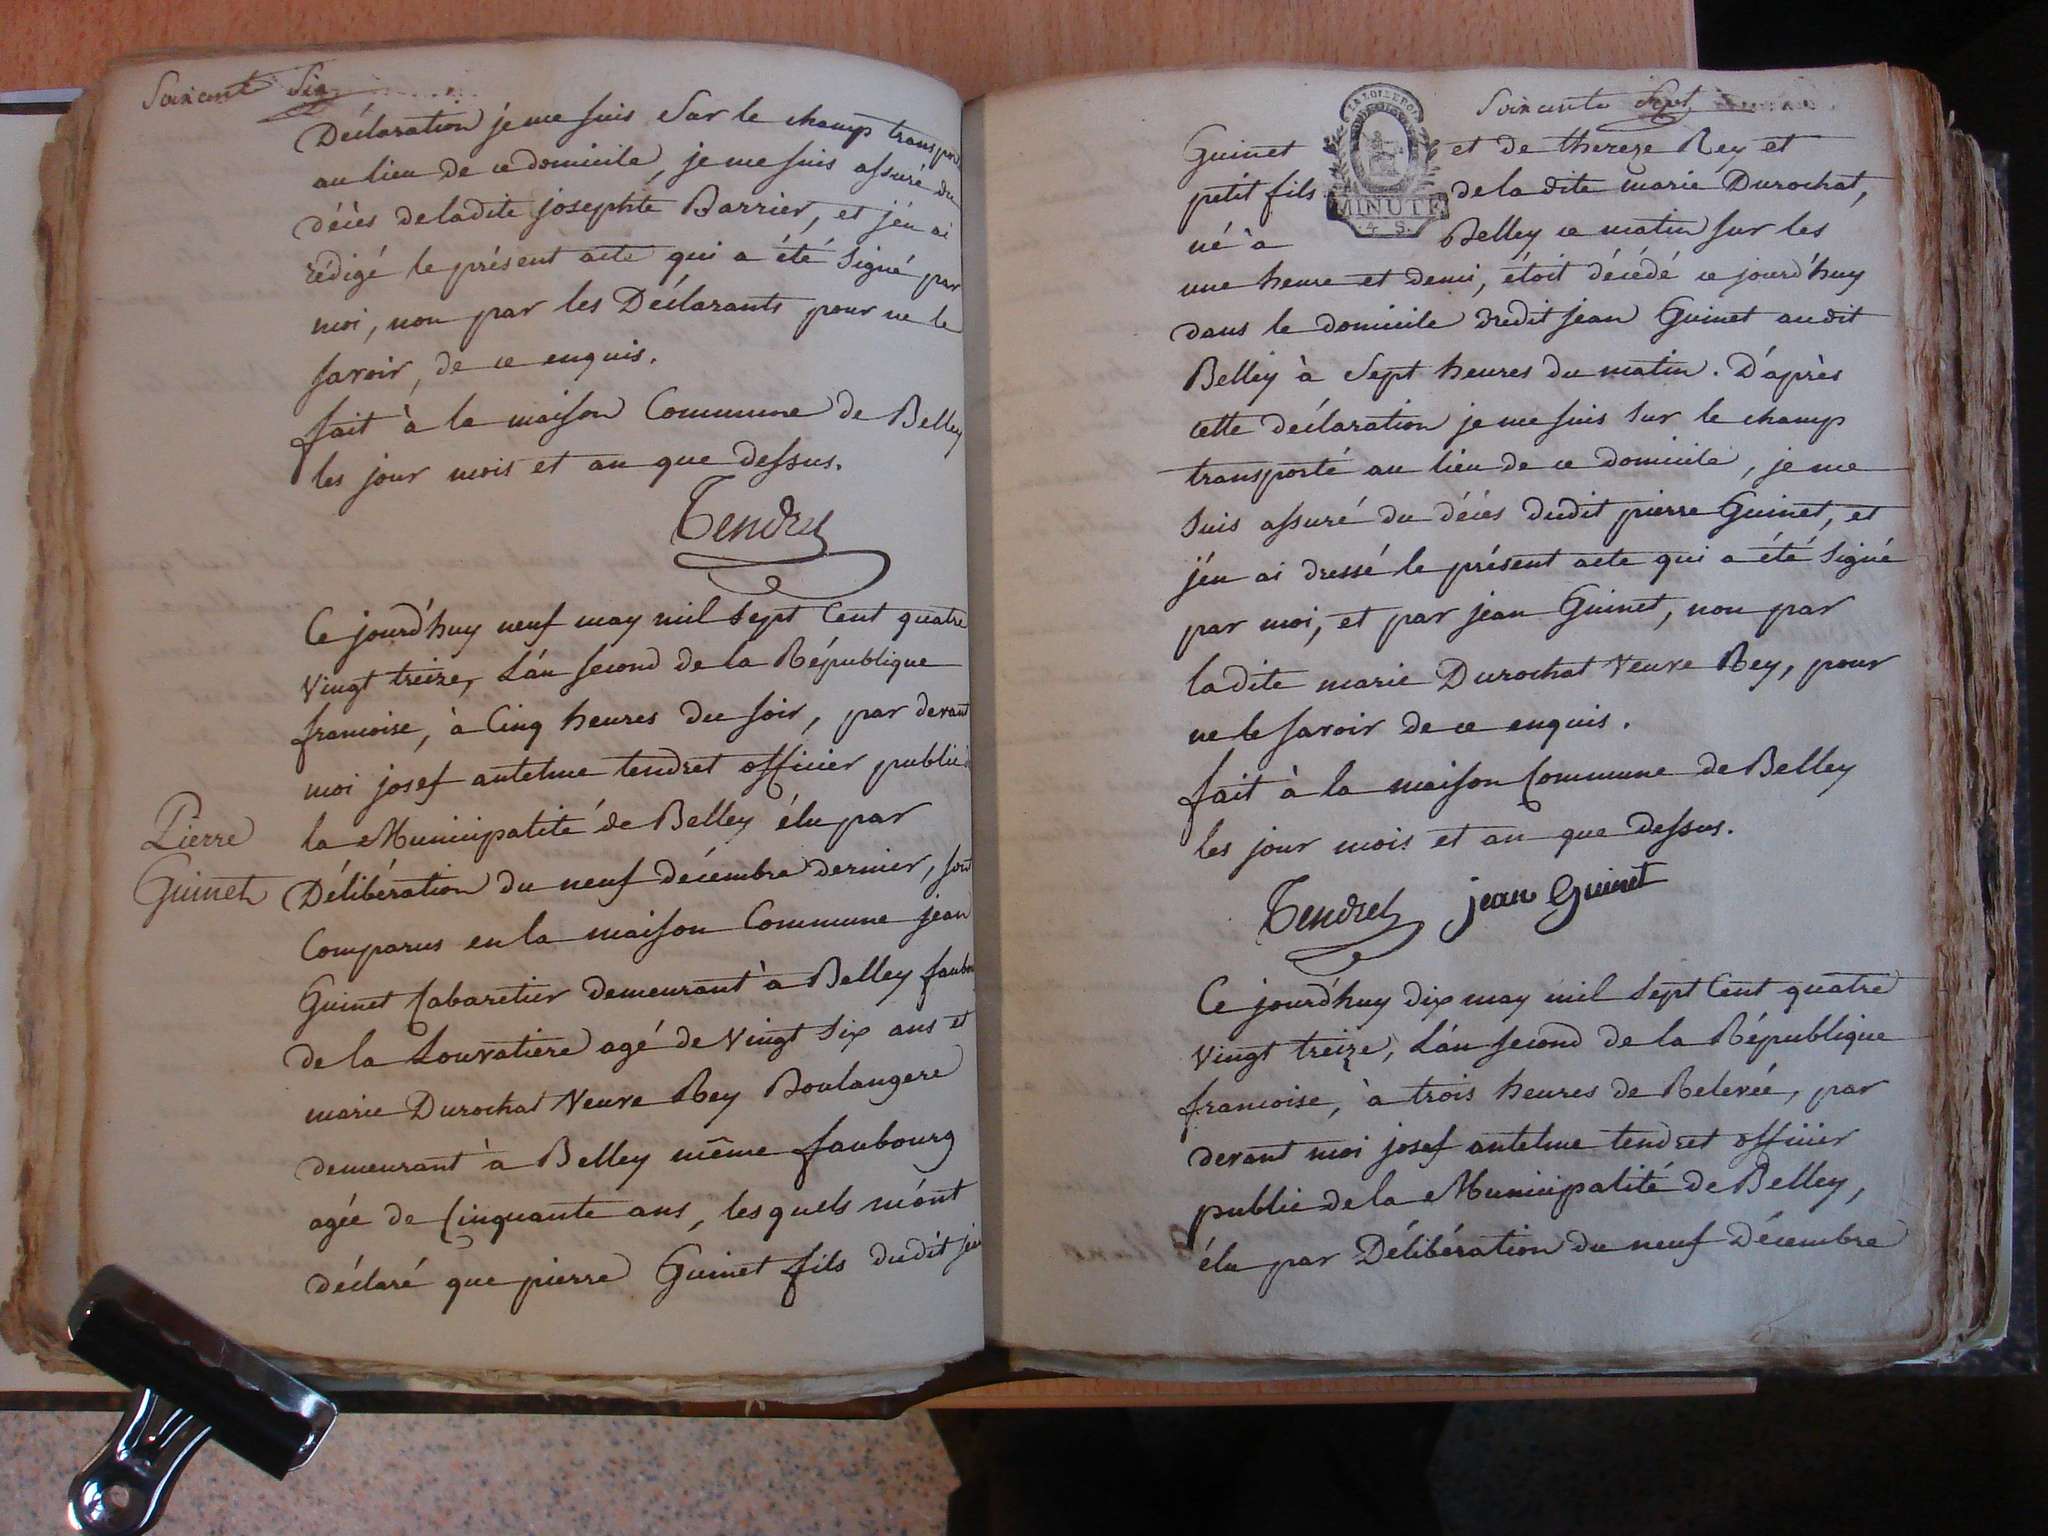 Soixante Six
Déclaration je me suis sur le champ transpor
au lieu de ce domicile, je me suis assuré du
décès de ladite josephte Barrier, et j'en ai
rédigé le présent acte qui a été signé par
moi, non par les Déclarants pour ne le
savoir, de ce enquis.
fait à la maison Commune de Belley
les jour mois et an que dessus.
Tendret
Ce jourd'huy neuf may mil sept Cent quatre
Vingt treize, L'an second de la République
francoise, à Cinq heures du soir, par devant
moi josef antelme tendret officier public d
la Municipalité de Belley élu par
Pierre
Guinet
Délibération du neuf décembre dernier, sont
Comparus en la maison Commune jean
Guinet Cabaretier demeurant à Belley faubou
de la Louvatiere agé de Vingt Six ans et
marie Durochat Veuve Rey Boulangere
demeurant à Belley même faubourg
agée de Cinquante ans, lesquels m'ont
déclaré que pierre Guinet fils dudit jea
Soixante Sept
LA LOI LE ROI
MINUTE
4 S.
Guinet et de thereze Rey et
petit fils de la dite marie Durochat,
né à Belley ce matin sur les
une heure et demi, étoit décédé ce jourd'huy
dans le domicile dudit jean Guinet audit
Belley à Sept heures du matin. D'après
cette déclaration je me suis sur le champ
transporté au lieu de ce domicile, je me
suis assuré du décès dudit pierre Guinet, et
j'en ai dressé le présent acte qui a été signé
par moi, et par jean Guinet, non par
ladite marie Durochat Veuve Rey, pour
ne le savoir de ce enquis.
fait à la maison Commune de Belley
les jour mois et an que dessus.
Tendret jean Guinet
Ce jourd'huy dix may mil sept Cent quatre
Vingt treize, L'an second de la République
francoise, à trois heures de Relevée, par
devant moi josef antelme tendret officier
public de la Municipalité de Belley,
élu par Délibération du neuf Décembre